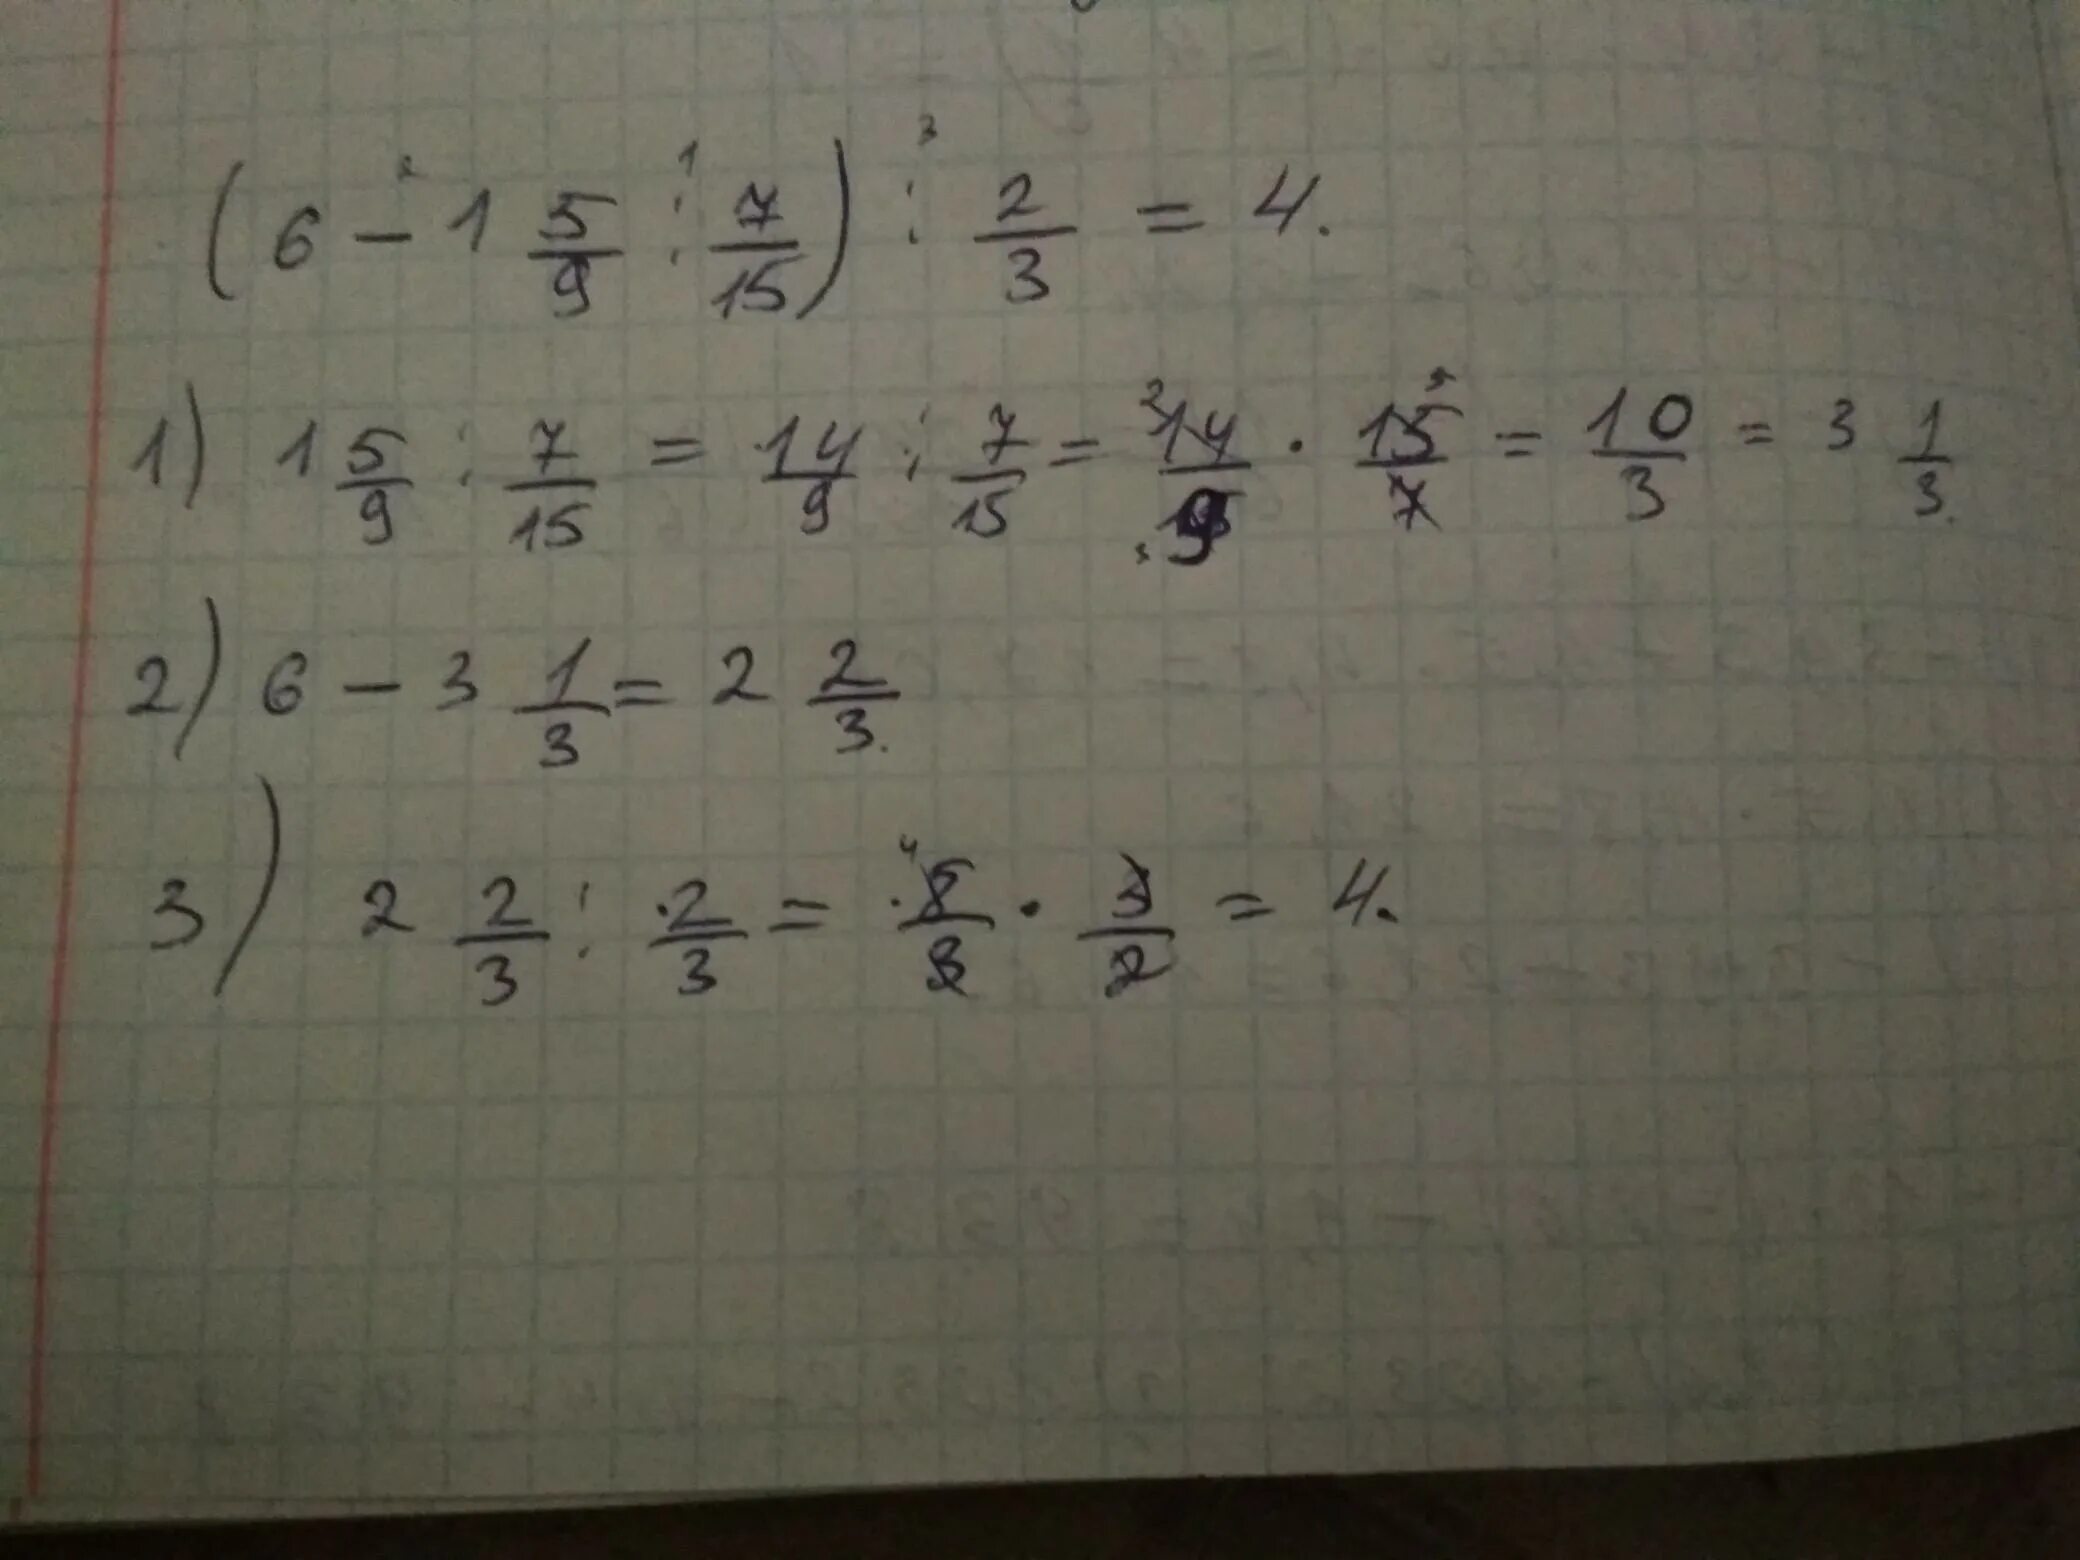 (6 - 1 5/9 : 7/15) : 2/3 = 4.
1) 1 5/9 : 7/15 = 14/9 : 7/15 = 14/9 · 15/7 = 10/3 = 3 1/3.
2) 6 - 3 1/3 = 2 2/3.
3) 2 2/3 : 2/3 = 8/3 · 3/2 = 4.